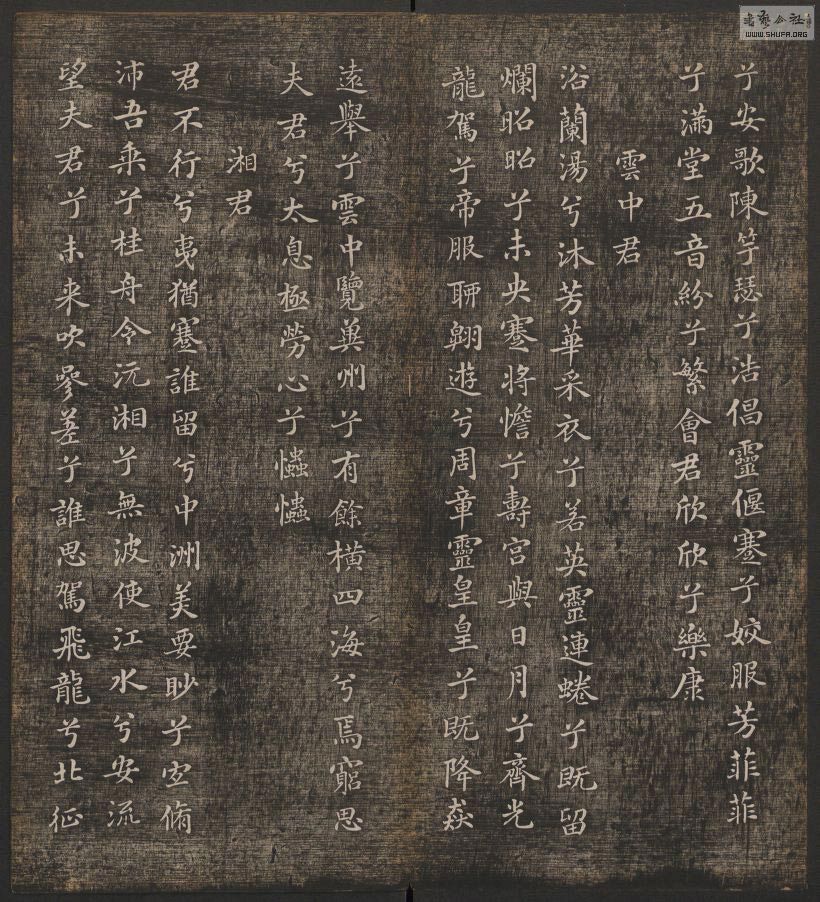 兮安歌陳竽瑟兮浩倡靈偃蹇兮姣服芳菲菲
兮滿堂五音紛兮繁會君欣欣兮樂康
雲中君
浴蘭湯兮沐芳華采衣兮若英靈連蜷兮既留
爛昭昭兮未央蹇將憺兮壽宮與日月兮齊光
龍駕兮帝服聊翱遊兮周章靈皇皇兮既降猋
遠舉兮雲中覽冀州兮有餘橫四海兮焉窮思
夫君兮太息極勞心兮忡忡
湘君
君不行兮夷猶蹇誰留兮中洲美要眇兮宜脩
沛吾乘兮桂舟令沅湘兮無波使江水兮安流
望夫君兮未来吹參差兮誰思駕飛龍兮北征
WWW.SHUFA.ORG